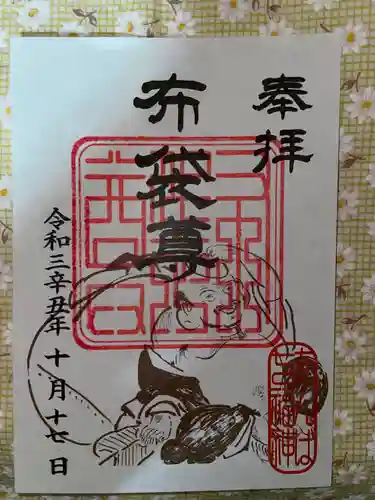 奉拝
布袋尊
令和三辛丑年十月十七日